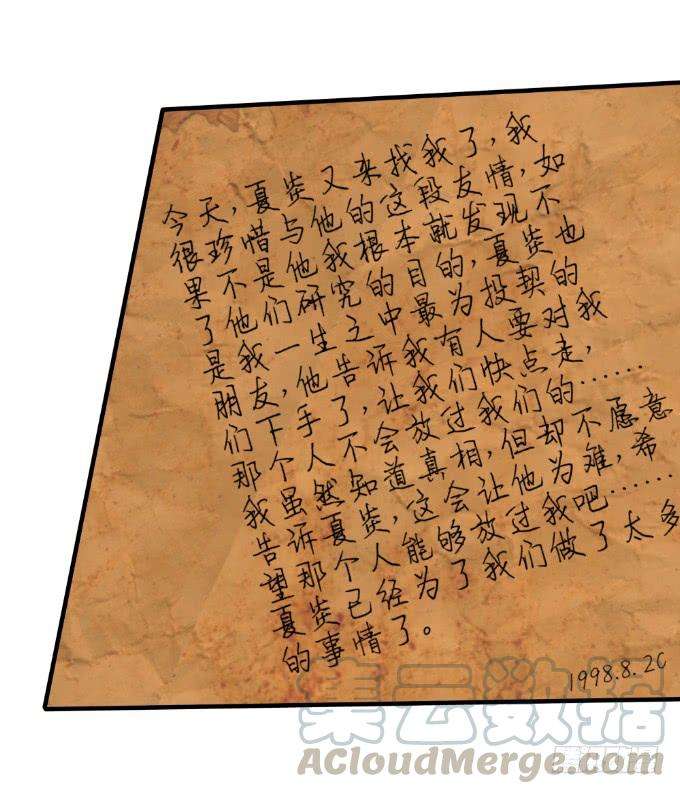 今天,夏炎又来找我了,我
很珍惜与他的这段友情,如
果不是他我根本就发现不
了他们研究的目的,夏炎也
是我一生之中最为投契的
朋友,他告诉我有人要对我
们下手了,让我们快点走,
那个人不会放过我们的……
我虽然知道真相,但却不愿意
告诉夏炎,这会让他为难,希
望那个人能够放过我吧……
夏炎已经为了我们做了太多
的事情了。
1998.8.20
聚云数据
ACloudMerge.com